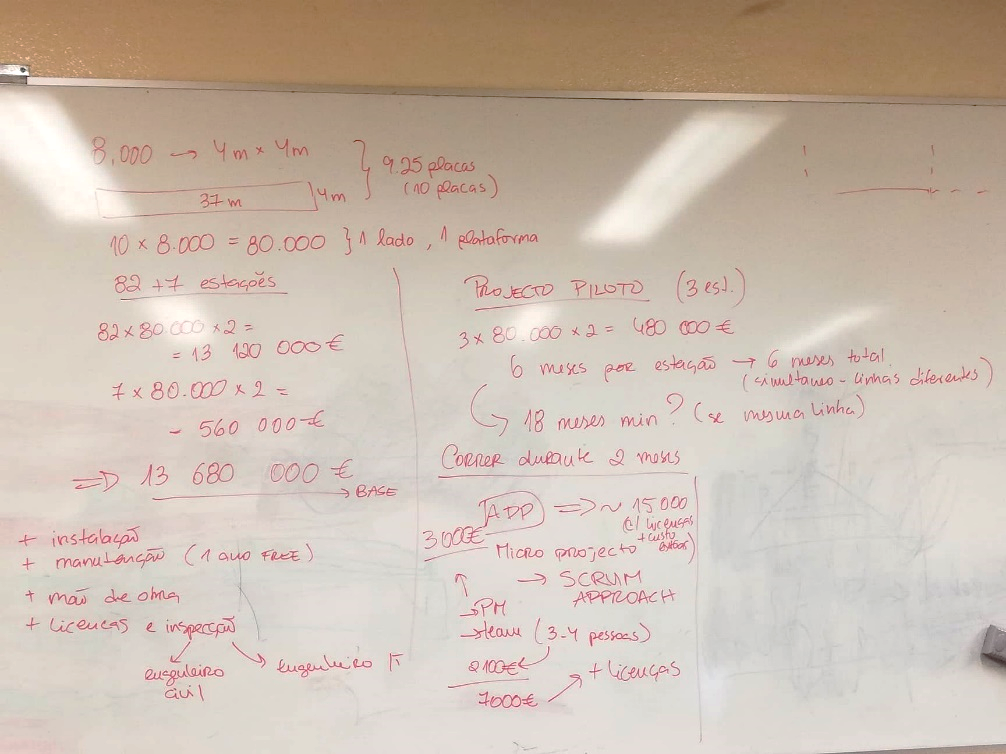 8.000 → 4m × 4m
37m
4m
9.25 placas
(10 placas)
10 × 8.000 = 80.000 } 1 lado, 1 plataforma
82 +7 estações
82 × 80.000 × 2 =
= 13 120 000€
7 × 80.000 × 2 =
- 560 000€
⇒ 13 680 000 €
→ BASE
+ instalação
+ manutenção (1 ano FREE)
+ mão de obra
+ licenças e inspecção
engenheiro
civil
engenheiro
PROJECTO PILOTO (3 est.)
3 × 80.000 × 2 = 480 000€
6 meses por estação → 6 meses total
(simultaneo - linhas diferentes)
18 meses min? (se mesma linha)
CORRER durante 2 meses
APP ⇒ ~ 15000
(c/ licenças
+ custo
3000€
Micro projecto
→ SCRUM
APPROACH
→ PM
→ team (3-4 pessoas)
2100€
7000€
+ licenças